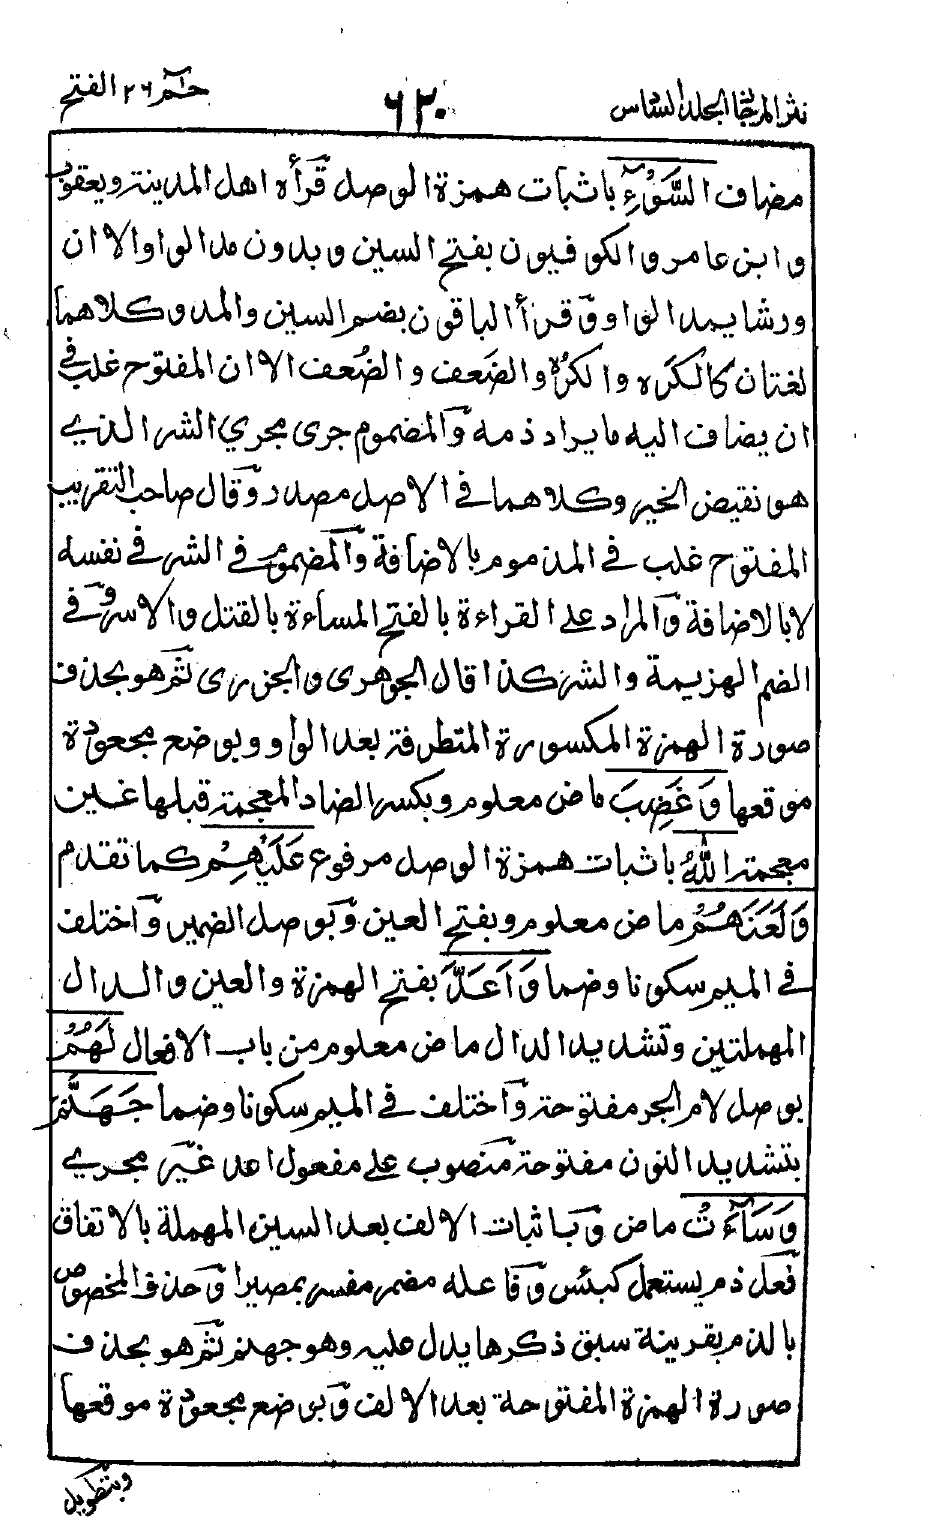 نثر المرجان الجلد السادس ٦٢٠ حٰمٓ ٢٦ الفتح
مضاف السَّوْءِ باثبات همزة الوصل قرأه اهل المدينة ويعقوب
وابن عامر والكوفيون بفتح السين وبدون مد الواو الا ان
ورشا يمد الواو وقرأ الباقون بضم السين والمد وكلاهما
لغتان كالكَره والكُره والضَعف والضُعف الا ان المفتوح غلب في
ان يضاف اليه ما يراد ذمه والمضموم جرى مجري الشر الذي
هو نقيض الخير وكلاهما في الاصل مصدر وقال صاحب التقريب
المفتوح غلب في المذموم بالاضافة والمضموم في الشر في نفسه
لا بالاضافة والمراد على القراءة بالفتح المساءة بالقتل والاسر وفي
الضم الهزيمة والشر كذا قال الجوهرى والجزرى ثم هو بحذف
صورة الهمزة المكسورة المتطرفة بعد الواو وبوضع مجعودة
موقعها وَغَضِبَ ماض معلوم وبكسر الضاد المعجمة قبلها غين
معجمة اللّٰهُ باثبات همزة الوصل مرفوع عَلَيْهِمْ كما تقدم
وَلَعَنَهُمْ ماض معلوم وبفتح العين وبوصل الضمير واختلف
في الميم سكونا وضما وَاَعَدَّ بفتح الهمزة والعين والدال
المهملتين وتشديد الدال ماض معلوم من باب الافعال لَهُمْ
بوصل لام الجر مفتوحة واختلف في الميم سكونا وضما جَهَنَّمَ
بتشديد النون مفتوحة منصوب على مفعول اعد غير مجري
وَسَآءَتْ ماض وباثبات الالف بعد السين المهملة بالاتفاق
فعل ذم يستعمل كبئس وفاعله مضمر مفسر بمصيرا وحذف المخصوص
بالذم بقرينة سبق ذكرها يدل عليه وهو جهنم ثم هو بحذف
صورة الهمزة المفتوحة بعد الالف وبوضع مجعودة موقعها
وبتطويل